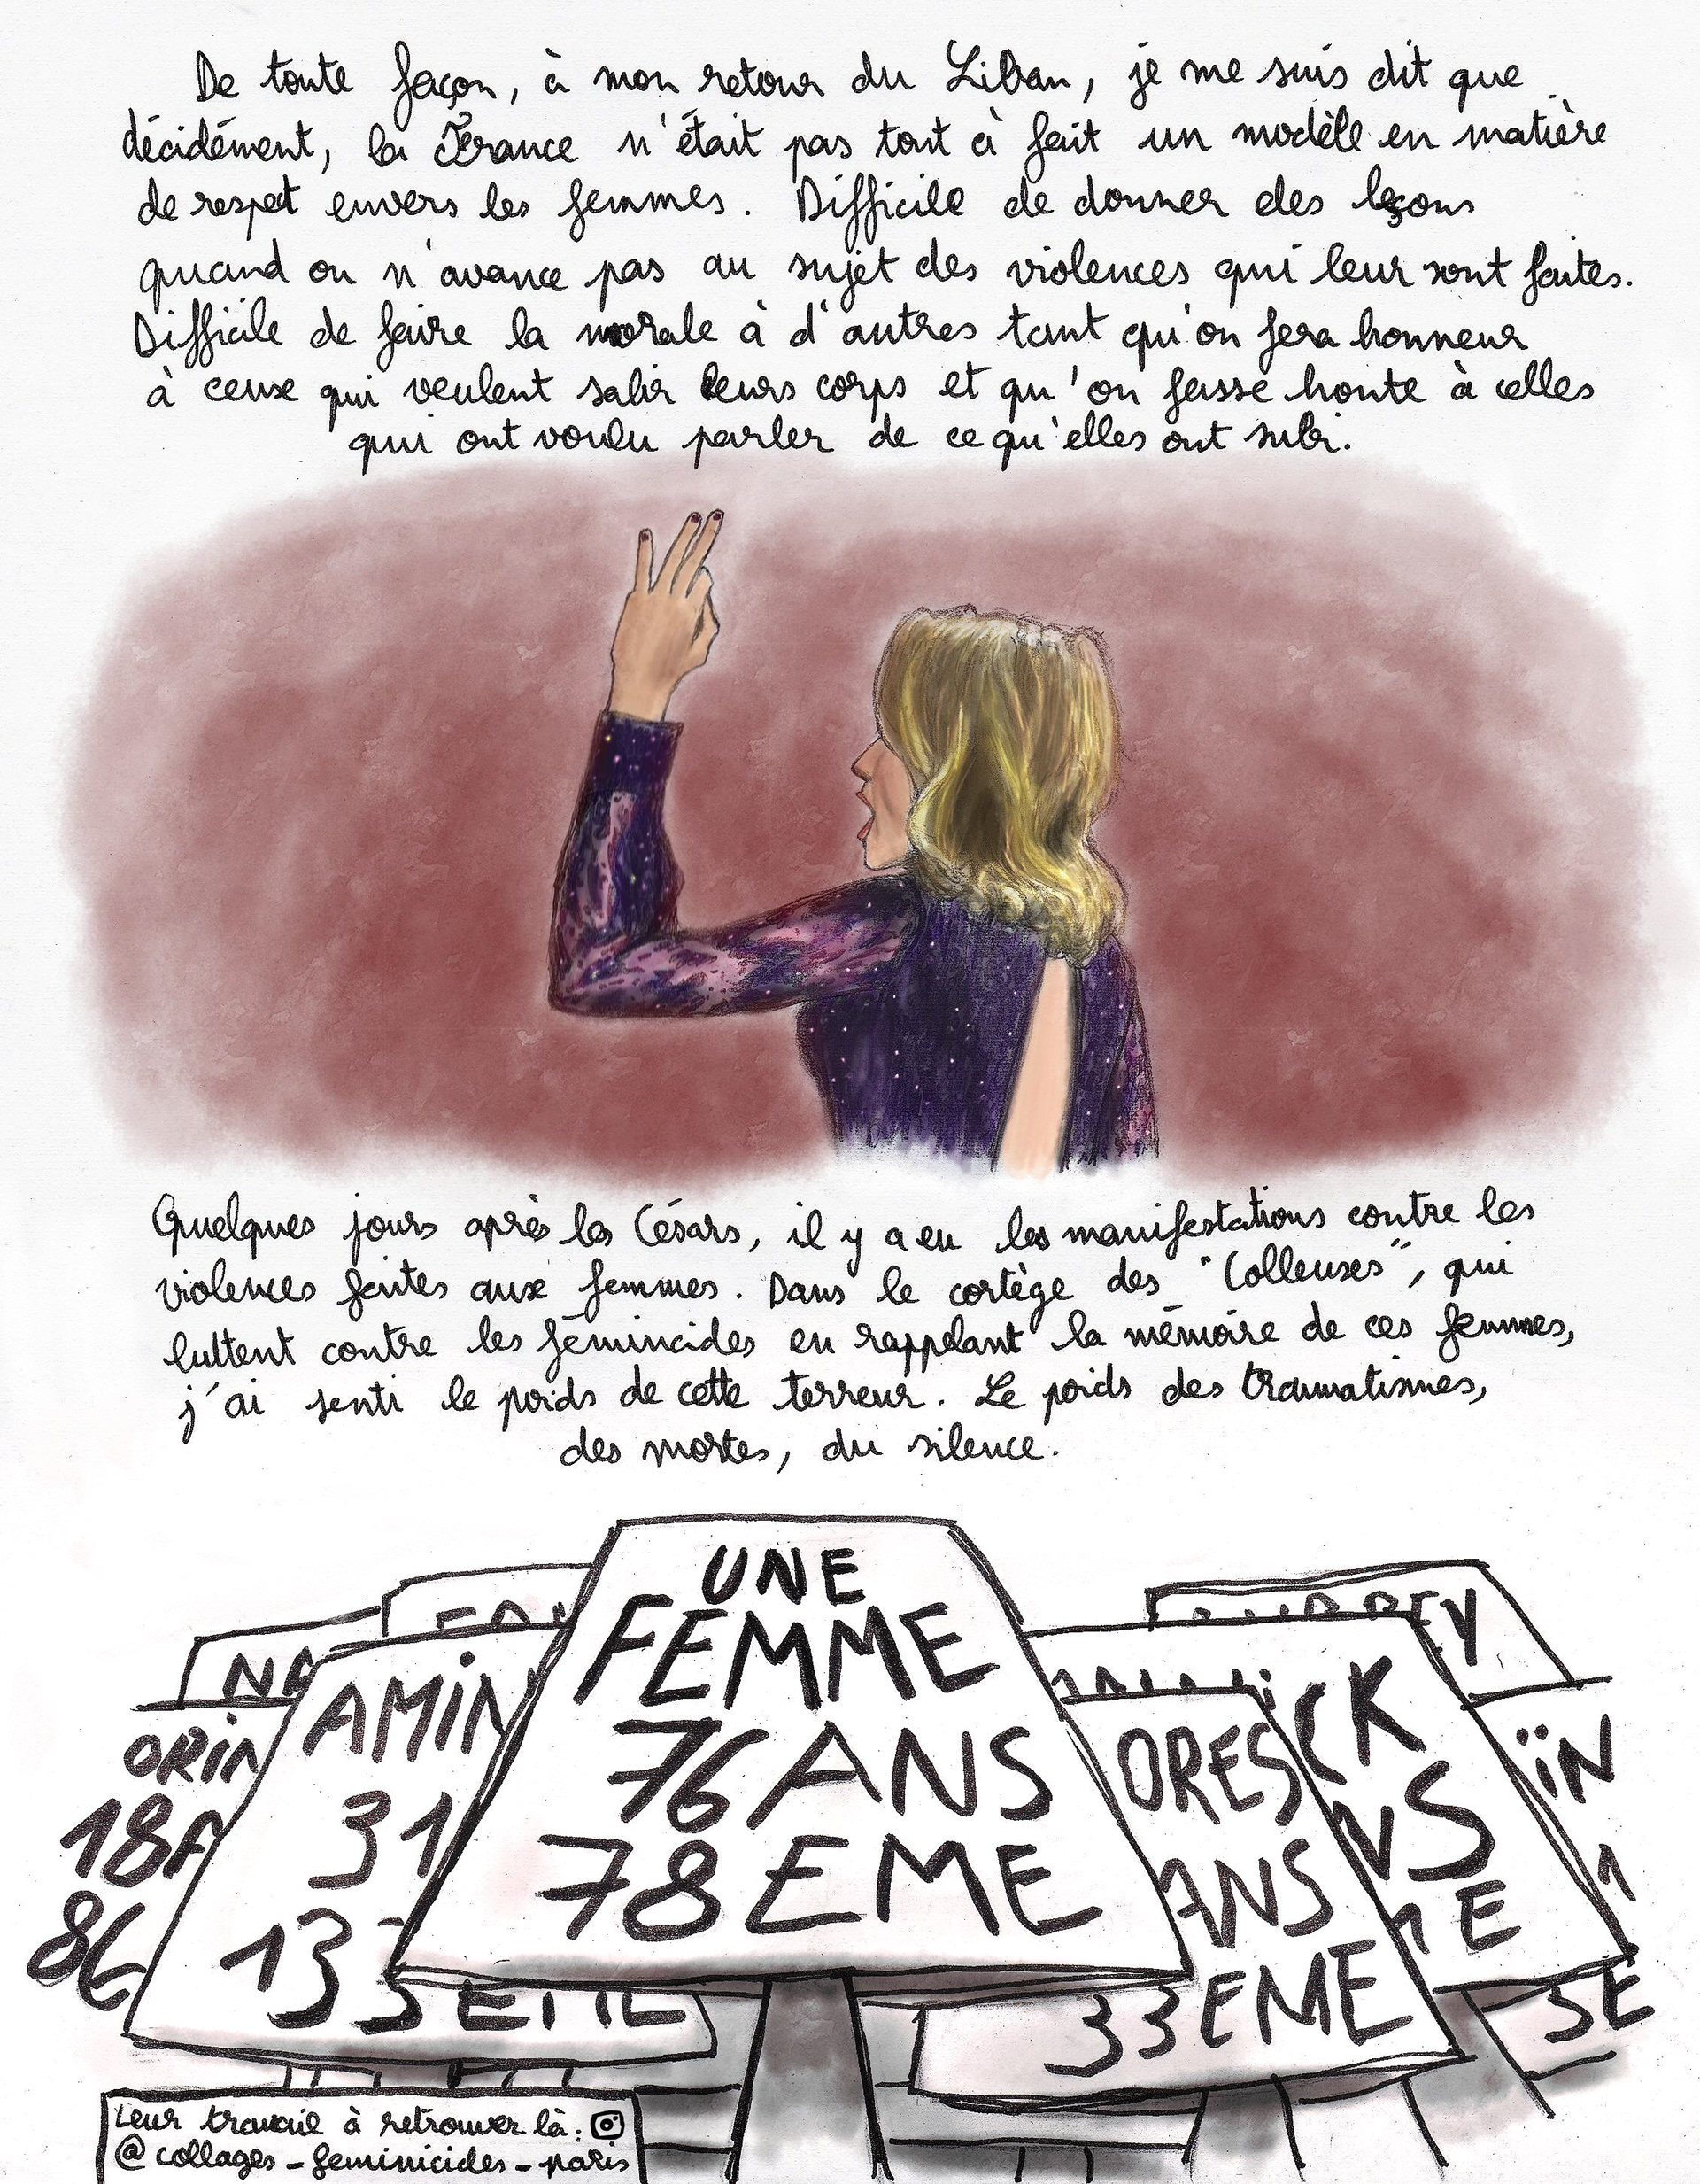 De toute façon, à mon retour du Liban, je me suis dit que
décidément, la France n'était pas tout à fait un modèle en matière
de respect envers les femmes. Difficile de donner des leçons
quand on n'avance pas au sujet des violences qui leur sont faites.
Difficile de faire la morale à d'autres tant qu'on fera honneur
à ceux qui veulent salir leurs corps et qu'on fasse honte à celles
qui ont voulu parler de ce qu'elles ont subi.
Quelques jours après les Césars, il y a eu les manifestations contre les
violences faites aux femmes. Dans le cortège des "Colleuses", qui
luttent contre les féminicides en rappelant la mémoire de ces femmes,
j'ai senti le poids de cette terreur. Le poids des traumatismes,
des mortes, du silence.
UNE
FEMME
76 ANS
78 EME
AMIN
31
133EME
ORIN
18A
86
NA
ORES
ANS
33EME
CK
NS
E
Y
ÏN
1
3E
Leur travail à retrouver là:
@collages_feminicides_paris